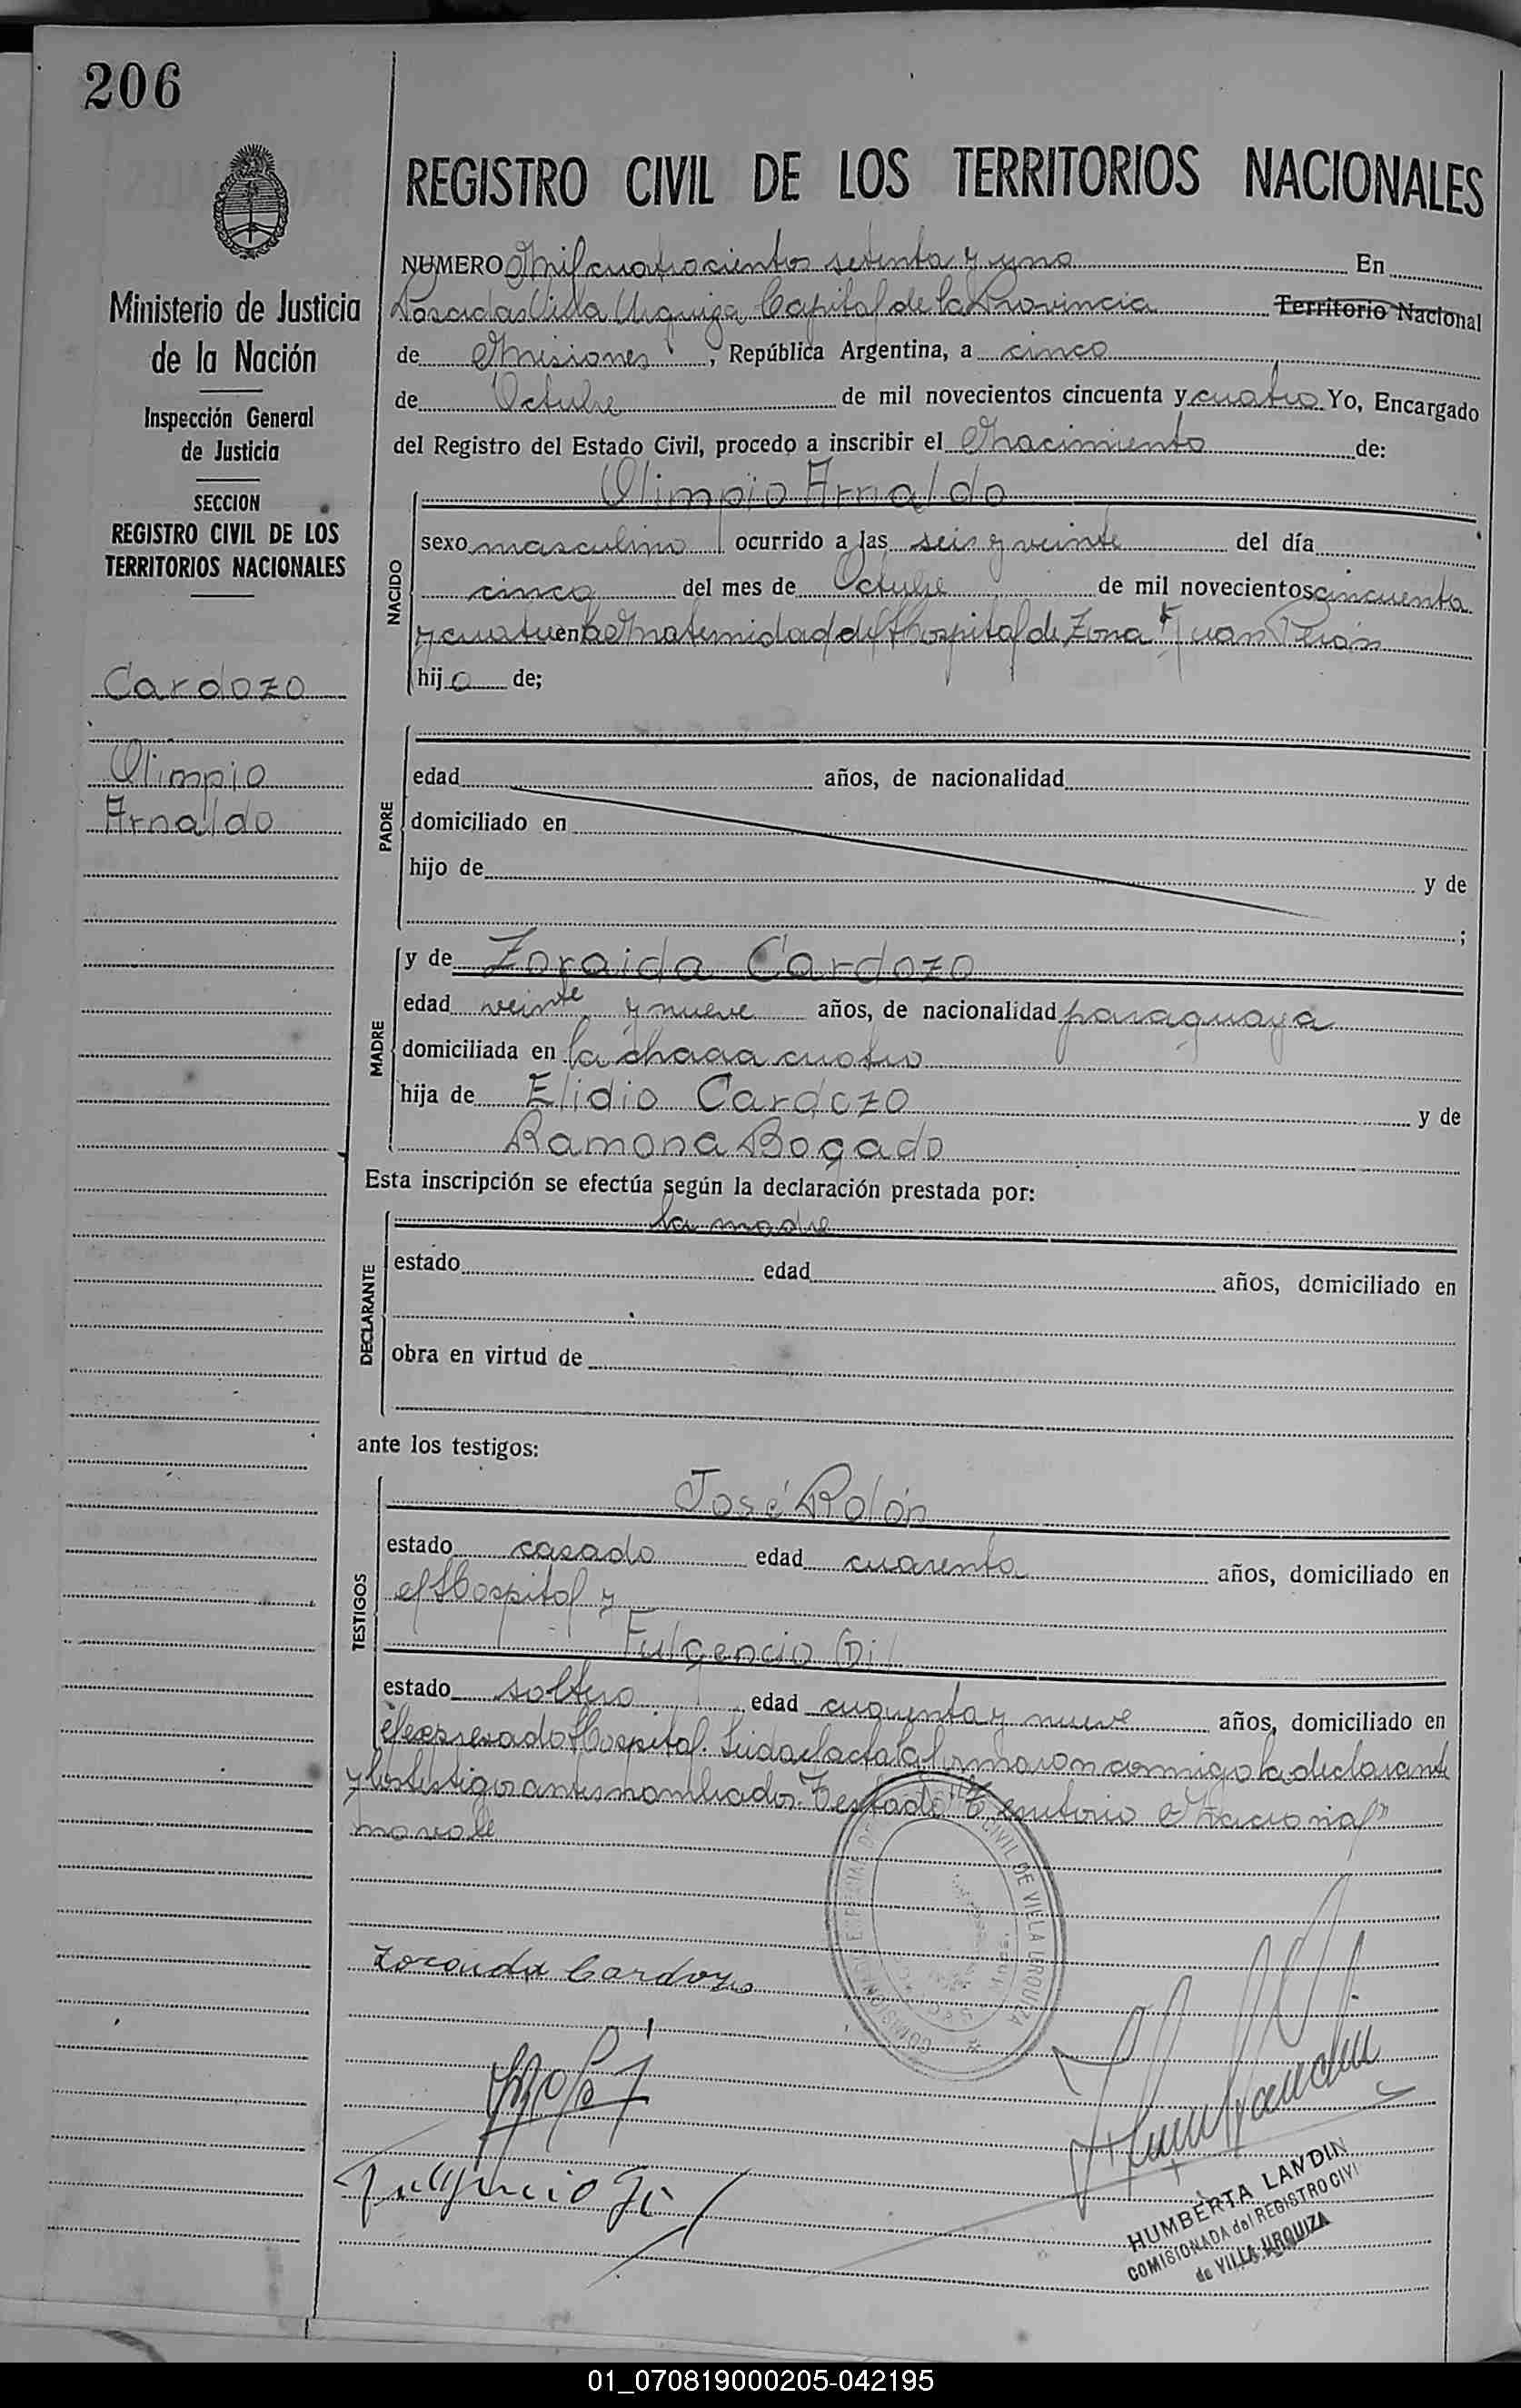 206
REGISTRO CIVIL DE LOS TERRITORIOS NACIONALES
Ministerio de Justicia
de la Nación
Inspección General
de Justicia
SECCION
REGISTRO CIVIL DE LOS
TERRITORIOS NACIONALES
Cardozo
Olimpio
Arnaldo
NUMERO Mil cuatrocientos setenta y uno En
Posadas Villa Urquiza Capital de la Provincia Territorio Nacional
de Misiones, República Argentina, a cinco
de Octubre de mil novecientos cincuenta y cuatro Yo, Encargado
del Registro del Estado Civil, procedo a inscribir el Nacimiento de:
NACIDO
Olimpio Arnaldo
sexo masculino ocurrido a las seis y veinte del día
cinco del mes de Octubre de mil novecientos cincuenta
y cuatro en la Maternidad del Hospital de Zona "Juan Perón
hijo de;
PADRE
edad años, de nacionalidad
domiciliado en
hijo de y de
;
MADRE
y de Zoraida Cardozo
edad veinte y nueve años, de nacionalidad paraguaya
domiciliada en la chacra cuatro
hija de Elidio Cardozo y de
Ramona Bogado
Esta inscripción se efectúa según la declaración prestada por:
DECLARANTE
la madre
estado edad años, domiciliado en
obra en virtud de
ante los testigos:
TESTIGOS
José Rolón
estado casado edad cuarenta años, domiciliado en
el Hospital y
Fulgencio Gil
estado soltero edad cuarenta y nueve años, domiciliado en
el expresado Hospital. Leida el acta la firmaron conmigo la declarante
y los testigos antes nombrados. Testado: "Territorio Nacional"
no vale
CIVIL DE VILLA URQUIZA
Zoraida Cardozo
Fulgencio Gil
HUMBERTA LANDIN
COMISIONADA del REGISTRO CIVI
de VILLA URQUIZA
01_070819000205-042195